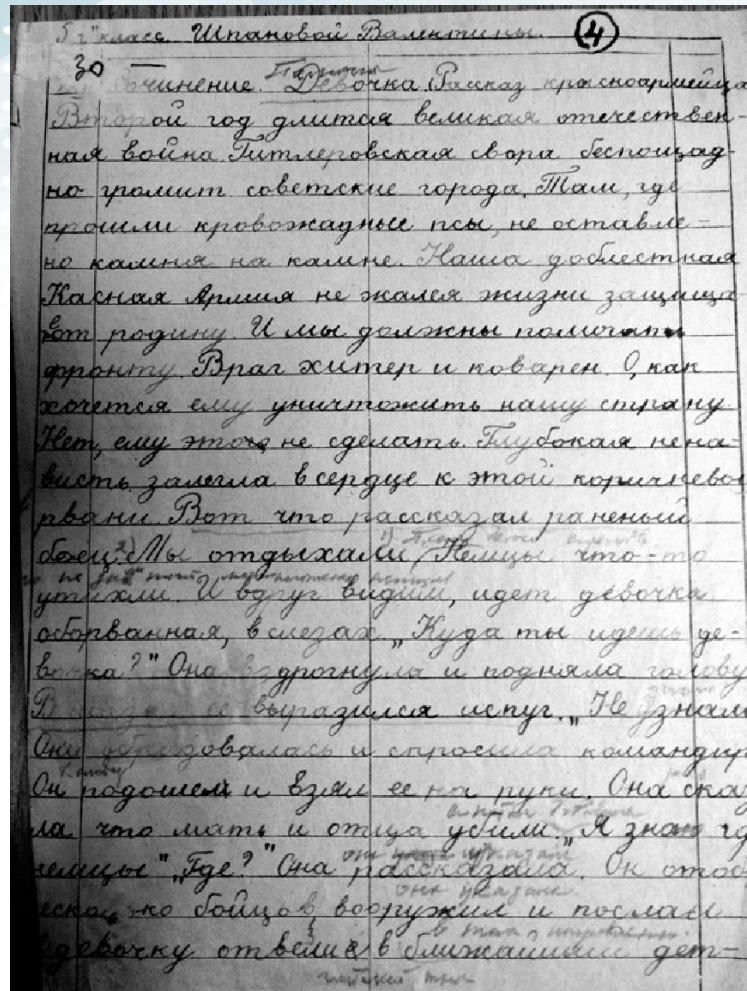 5 "г" класс Шпановой Валентины. 4
30
Сочинение. Девочка (Рассказ красноармейца
Второй год длится великая отечествен-
ная война. Гитлеровская свора беспощад-
но громит советские города. Там, где
прошли кровожадные псы, не оставле-
но камня на камне. Наша доблестная
Касная Армия не жалея жизни защища-
ет родину. И мы должны помогать
фронту. Враг хитер и коварен. О, как
хочется ему уничтожить нашу страну
Нет, ему этого не сделать. Глубокая нена-
висть залегла в сердце к этой коричневой
рвани. Вот что рассказал раненый
боец. 2) Мы отдыхали. Немцы что-то
утихли. И вдруг видим, идет девочка
оборванная, в слезах. „Куда ты идешь де-
вочка?" Она вздрогнула и подняла голову
В ее выразился испуг. „Не знаю
Она обрадовалась и спросила командир
Он подошел и взял ее на руки. Она сказ
ла что мать и отца убили. „Я знаю где
немцы" „Где?" Она рассказала. Он отоб
бойцов, вооружил и послал
девочку отвели в ближайший дет-